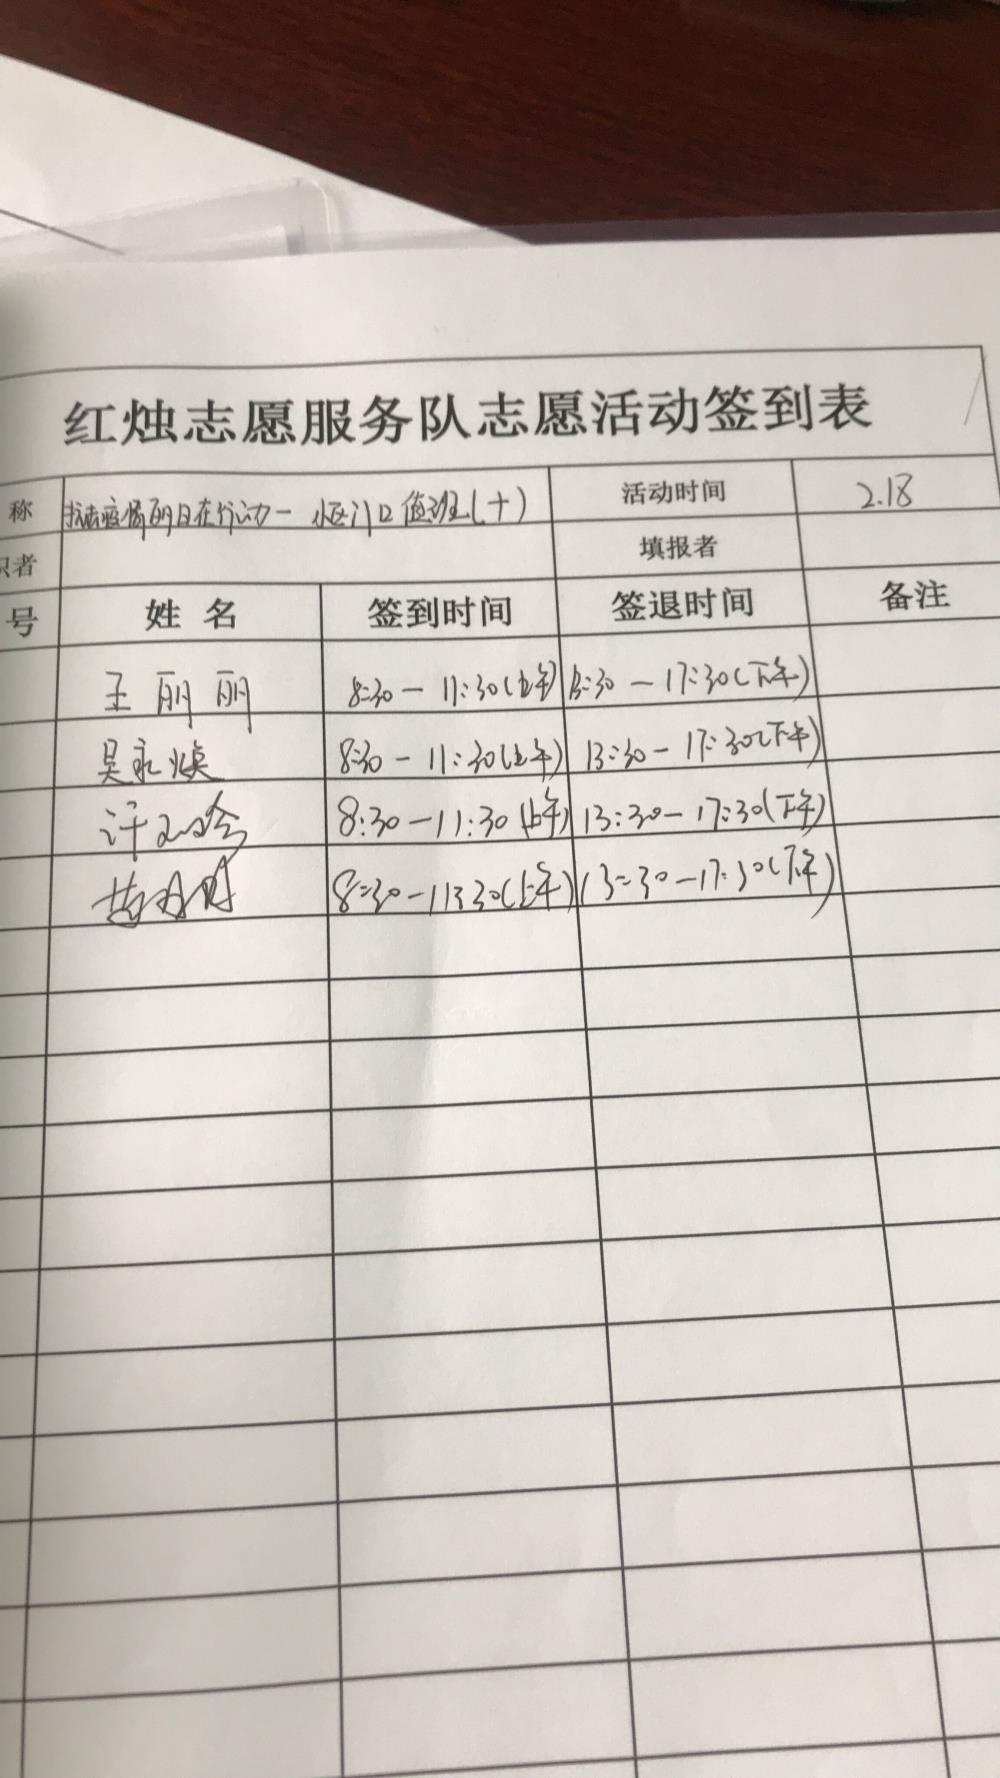 红烛志愿服务队志愿活动签到表
称 抗击疫情 在行动一 小区门口值班(十) 活动时间 2.18
织者 填报者
号 姓名 签到时间 签退时间 备注
王丽丽 8:30-11:30(上午) 13:30-17:30(下午)
吴永焕 8:30-11:30(上午) 13:30-17:30(下午)
8:30-11:30(上午) 13:30-17:30(下午)
8:30-11:30(上午) 13:30-17:30(下午)